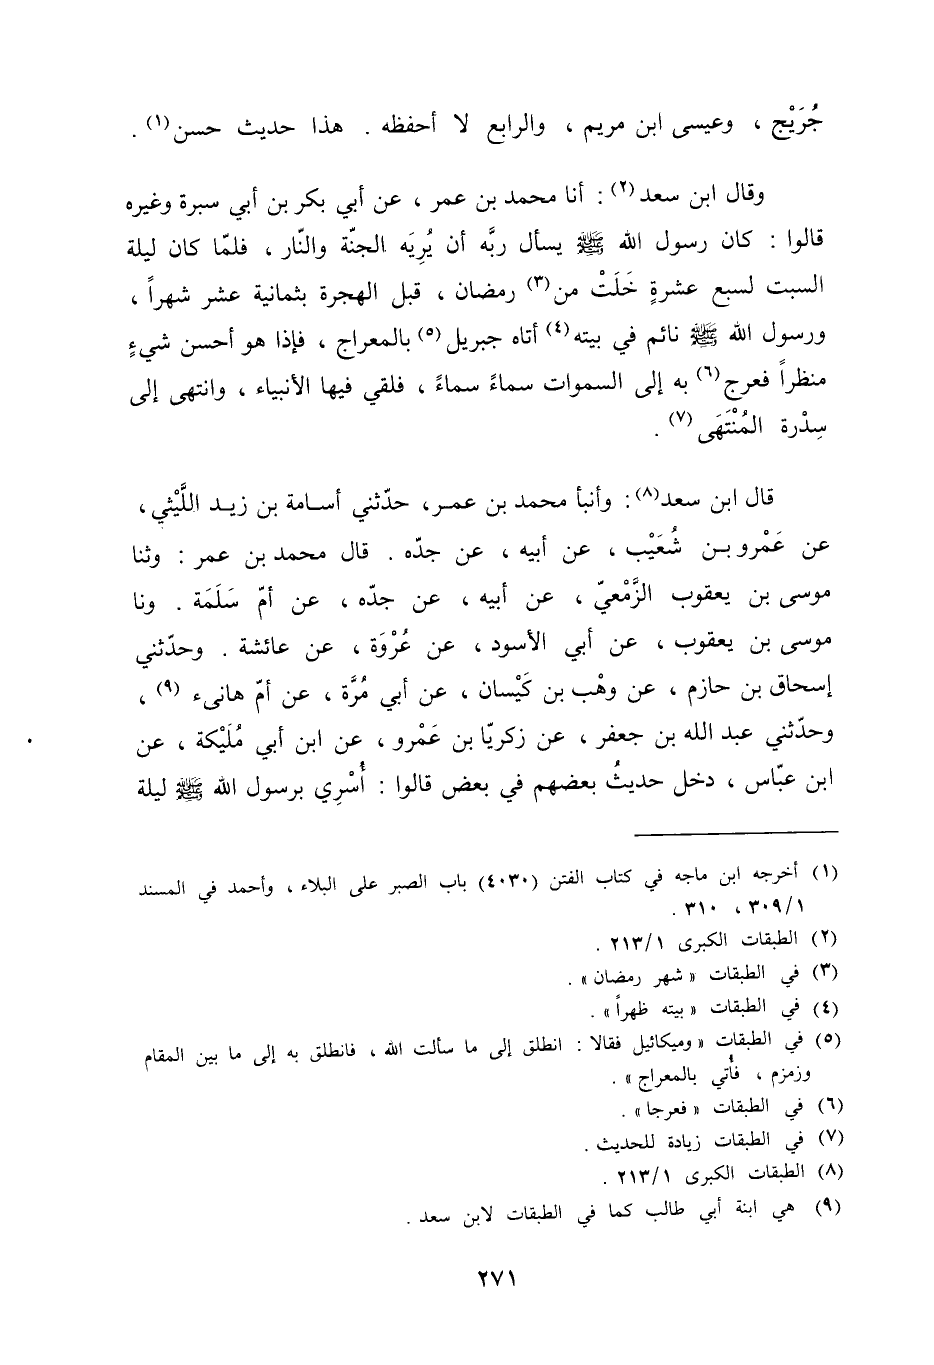 جُرَيْج ، وعيسى ابن مريم ، والرابع لا أحفظه . هذا حديث حسن(١) .
وقال ابن سعد(٢) : أنا محمد بن عمر ، عن أبي بكر بن أبي سبرة وغيره
قالوا : كان رسول الله ﷺ يسأل ربَّه أن يُرِيَه الجنّة والنّار ، فلمّا كان ليلة
السبت لسبع عشرةٍ خَلَتْ من(٣) رمضان ، قبل الهجرة بثمانية عشر شهراً ،
ورسول الله ﷺ نائم في بيته(٤) أتاه جبريل(٥) بالمعراج ، فإذا هو أحسن شيءٍ
منظراً فعرج(٦) به إلى السموات سماءً سماءً ، فلقي فيها الأنبياء ، وانتهى إلى
سِدْرة المُنْتَهَى(٧) .
قال ابن سعد(٨) : وأنبأ محمد بن عمر، حدّثني أسامة بن زيد اللَّيْثي ،
عن عَمْرو بن شُعَيْب ، عن أبيه ، عن جدّه . قال محمد بن عمر : وثنا
موسى بن يعقوب الزَّمْعيّ ، عن أبيه ، عن جدّه ، عن أمّ سَلَمَة . ونا
موسى بن يعقوب ، عن أبي الأسود ، عن عُرْوَة ، عن عائشة . وحدّثني
إسحاق بن حازم ، عن وهْب بن كَيْسان ، عن أبي مُرَّة ، عن أمّ هانىء (٩) ،
وحدّثني عبد الله بن جعفر ، عن زكريّا بن عَمْرو ، عن ابن أبي مُلَيْكة ، عن
ابن عبّاس ، دخل حديثُ بعضهم في بعض قالوا : أُسْرِي برسول الله ﷺ ليلة
(١) أخرجه ابن ماجه في كتاب الفتن (٤٠٣٠) باب الصبر على البلاء ، وأحمد في المسند
٣٠٩/١ ، ٣١٠ .
(٢) الطبقات الكبرى ٢١٣/١ .
(٣) في الطبقات « شهر رمضان » .
(٤) في الطبقات « بيته ظهراً » .
(٥) في الطبقات « وميكائيل فقالا : انطلق إلى ما سألت الله ، فانطلق به إلى ما بين المقام
وزمزم ، فأُتي بالمعراج » .
(٦) في الطبقات « فعرجا » .
(٧) في الطبقات زيادة للحديث .
(٨) الطبقات الكبرى ٢١٣/١ .
(٩) هي ابنة أبي طالب كما في الطبقات لابن سعد .
٢٧١